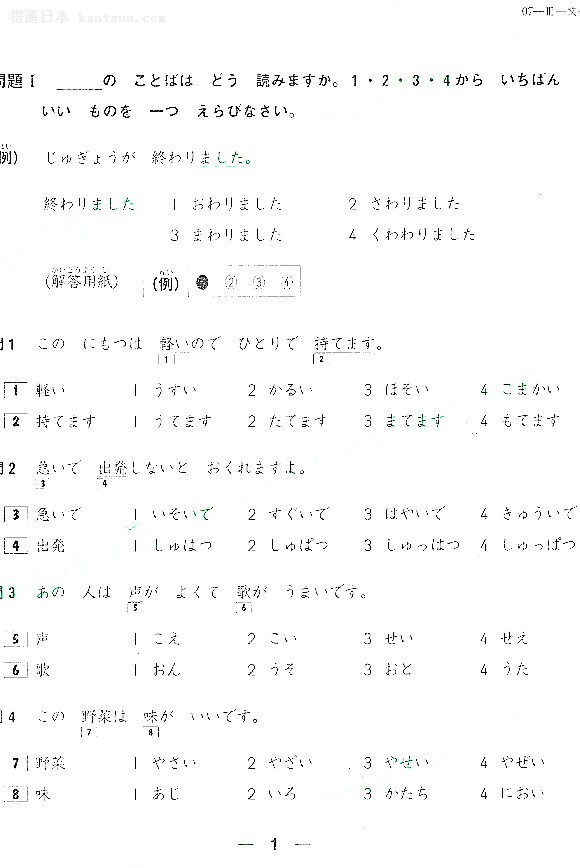 贯通日本 kantsuu.com
07—Ⅲ—文
問題Ⅰ ＿＿＿の ことばは どう 読みますか。1・2・3・4から いちばん
いい ものを 一つ えらびなさい。
れい
例) じゅぎょうが 終わりました。
終わりました 1 おわりました 2 さわりました
3 まわりました 4 くわわりました
かいとうようし れい
(解答用紙) (例) ② ③ ④
問1 この にもつは 軽いので ひとりで 持てます。
1 2
1 軽い 1 うすい 2 かるい 3 ほそい 4 こまかい
2 持てます 1 うてます 2 たてます 3 まてます 4 もてます
問2 急いで 出発しないと おくれますよ。
3 4
3 急いで 1 いそいで 2 すぐいで 3 はやいで 4 きゅういで
4 出発 1 しゅはつ 2 しゅぱつ 3 しゅっはつ 4 しゅっぱつ
問3 あの 人は 声が よくて 歌が うまいです。
5 6
5 声 1 こえ 2 こい 3 せい 4 せえ
6 歌 1 おん 2 うそ 3 おと 4 うた
問4 この 野菜は 味が いいです。
7 8
7 野菜 1 やさい 2 やざい 3 やせい 4 やぜい
8 味 1 あじ 2 いろ 3 かたち 4 におい
— 1 —